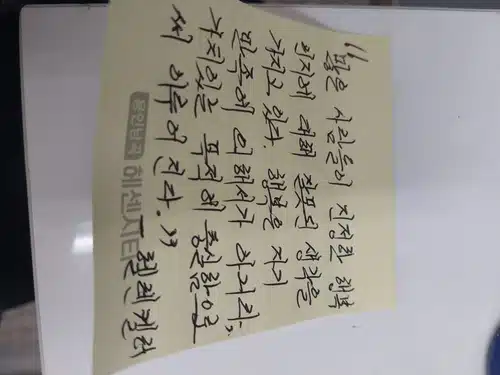 "많은 사람들이 진정한 행복
의지에 대해 잘못된 생각을
가지고 있다. 행복은 자기
만족에 의해서가 아니라,
가치있는 목적에 충실함으로
써 이루어진다."
헬렌켈러
용인남곡
헤센시티